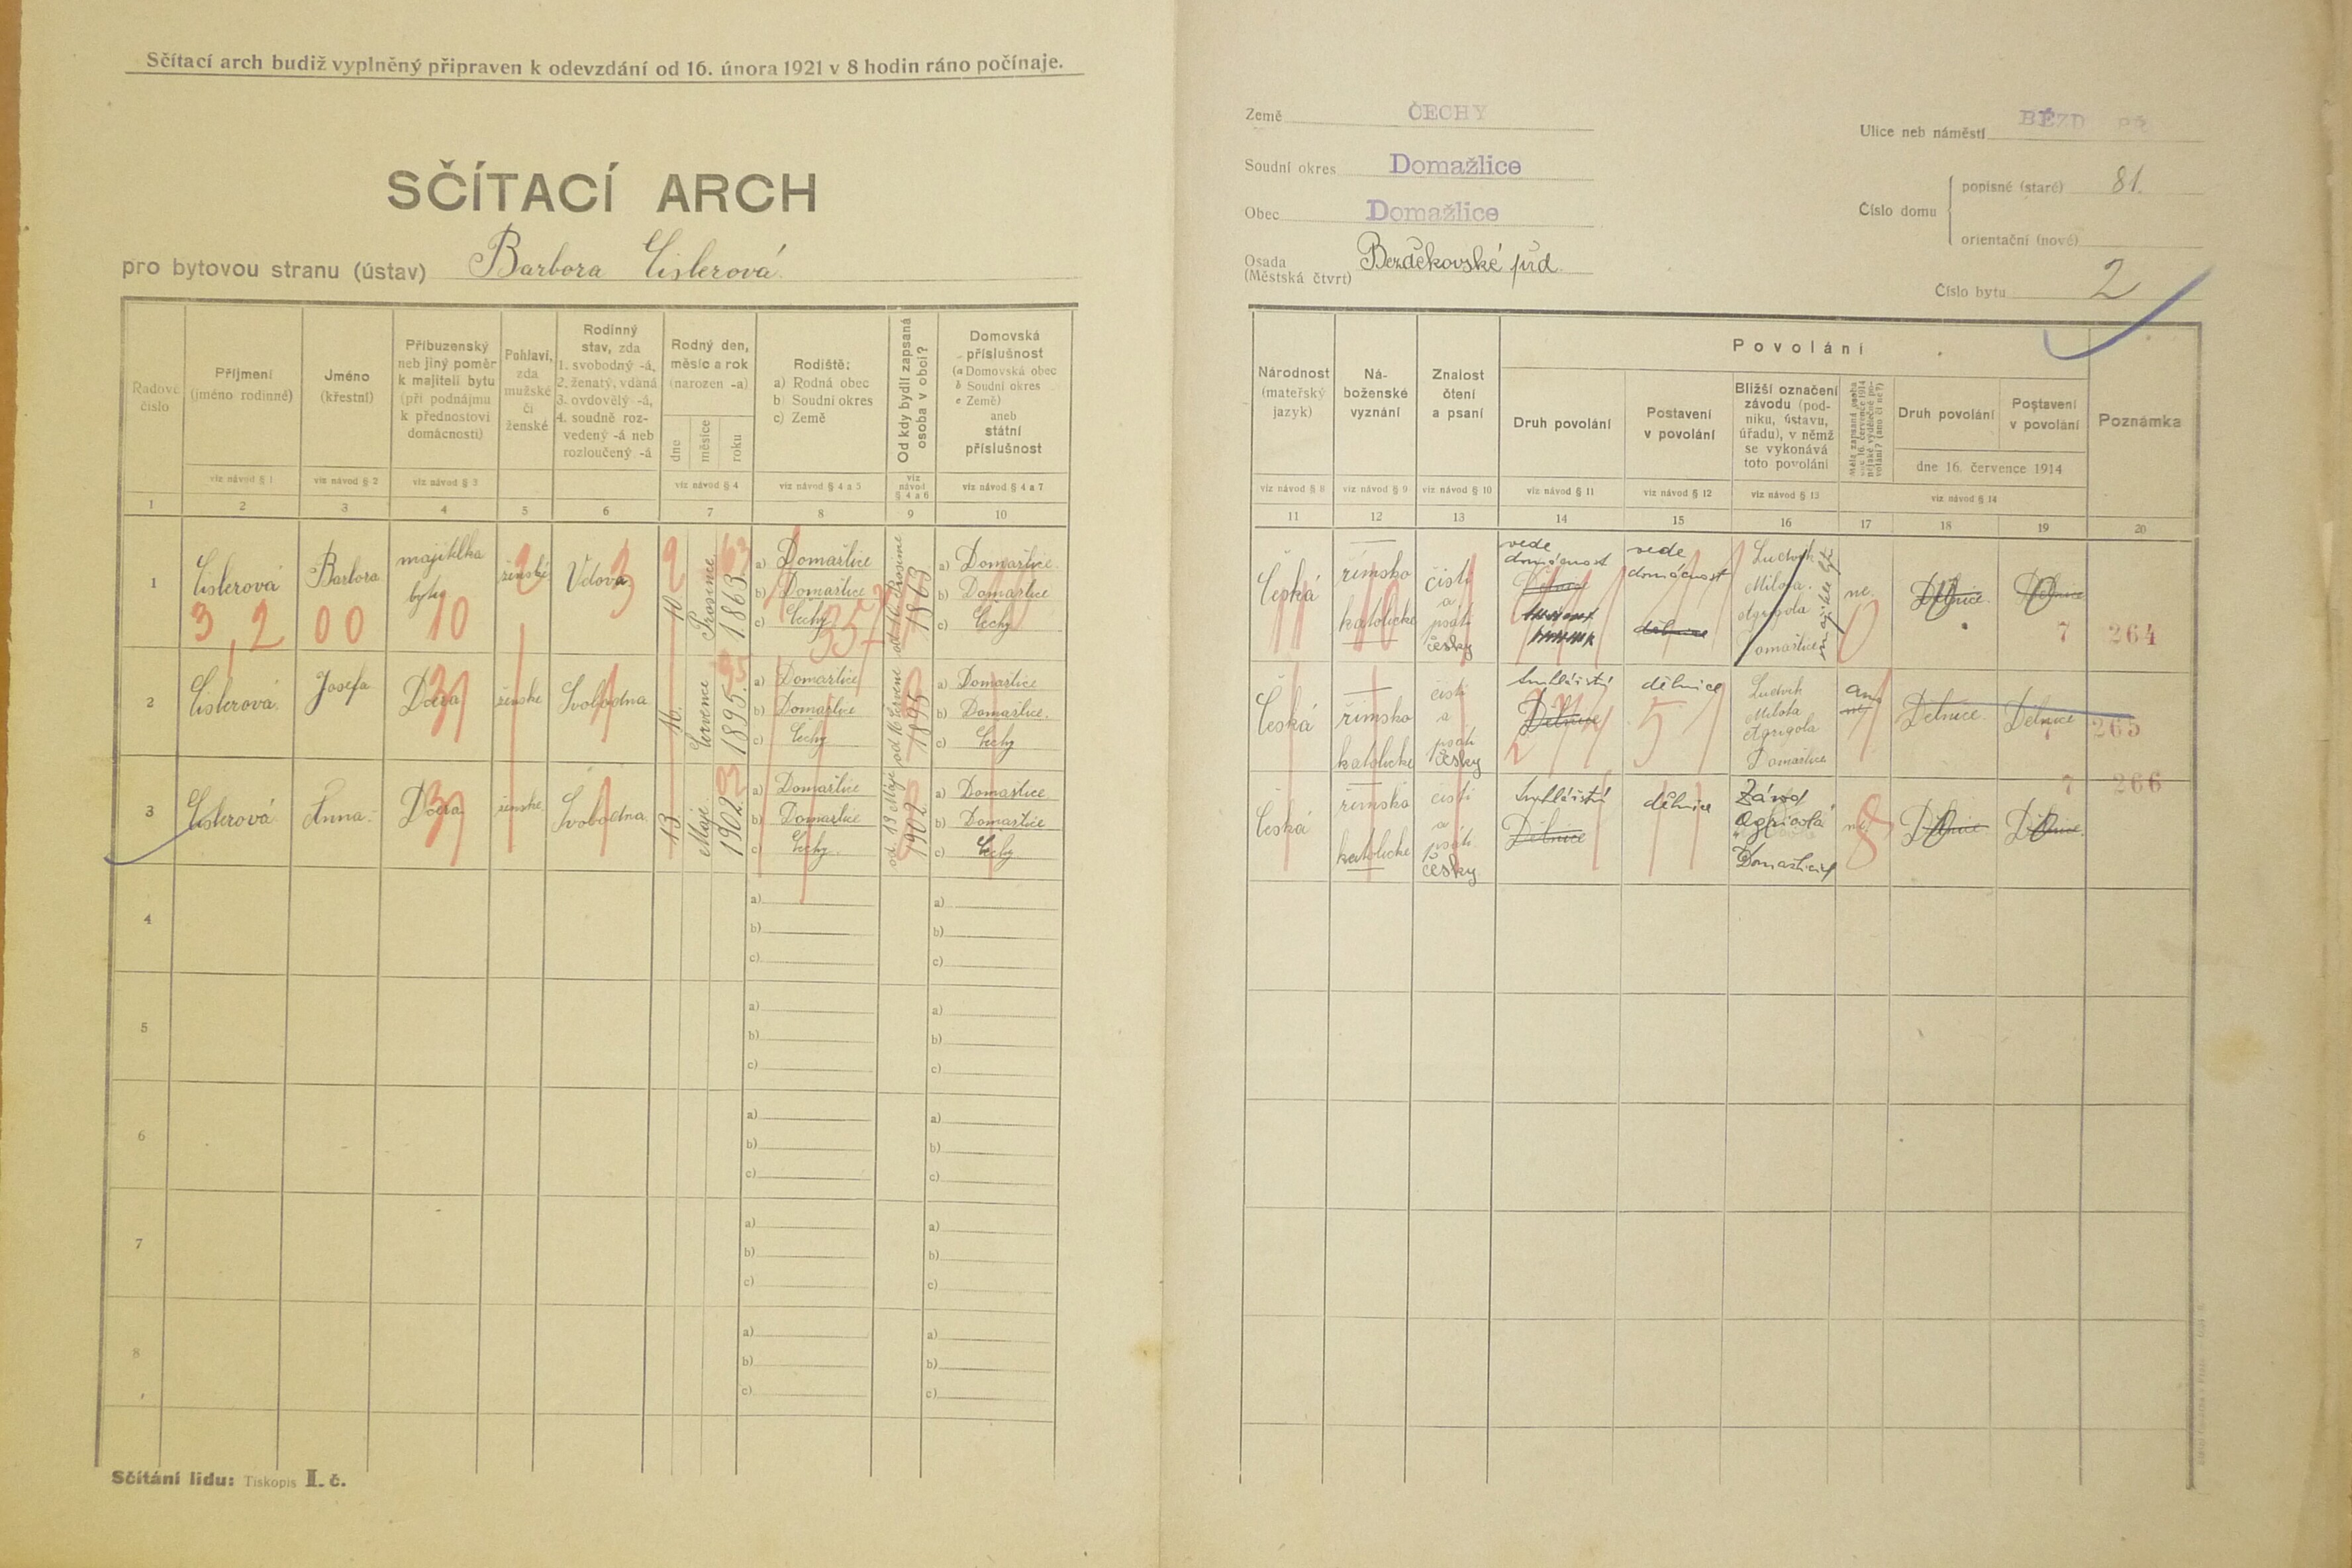 Sčítací arch budiž vyplněný připraven k odevzdání od 16. února 1921 v 8 hodin ráno počínaje.
SČÍTACÍ ARCH
pro bytovou stranu (ústav) Barbora Cislerová
Řadové číslo
Příjmení (jméno rodinné)
Jméno (křestní)
Příbuzenský neb jiný poměr k majiteli bytu (při podnájmu k přednostovi domácnosti)
Pohlaví, zda mužské či ženské
Rodinný stav, zda 1. svobodný -á, 2. ženatý, vdaná 3. ovdovělý -á, 4. soudně rozvedený -á neb rozloučený -á
Rodný den, měsíc a rok (narozen -a)
dne
měsíce
roku
Rodiště: a) Rodná obec b) Soudní okres c) Země
Od kdy bydlí zapsaná osoba v obci?
Domovská příslušnost (a Domovská obec b Soudní okres c Země) aneb státní příslušnost
viz návod § 1
viz návod § 2
viz návod § 3
viz návod § 4
viz návod § 4 a 5
viz návod § 4 a 6
viz návod § 4 a 7
1 2 3 4 5 6 7 8 9 10
1 Cislerová Barbora majitelka bytu ženské Vdova 10 Prosince 1863
a) Domažlice
b) Domažlice
c) Čechy
1863
a) Domažlice
b) Domažlice
c) Čechy
3,2 00 10
2 Cislerová Josefa Dcera ženske Svobodna 16. Července 1895
a) Domažlice
b) Domažlice
c) Čechy
od 16 Července 1895
a) Domažlice
b) Domažlice
c) Čechy
3 Cislerová Anna Dcera ženske Svobodna 13 Máje 1902
a) Domažlice
b) Domažlice
c) Čechy
od 13 Máje 1902
a) Domažlice
b) Domažlice
c) Čechy
4 a) a)
b) b)
c) c)
5 a) a)
b) b)
c) c)
6 a) a)
b) b)
c) c)
7 a) a)
b) b)
c) c)
8 a) a)
b) b)
c) c)
Sčítání lidu: Tiskopis I. č.
Země ČECHY
Soudní okres Domažlice
Obec Domažlice
Osada (Městská čtvrť) Bezděkovské před.
Ulice neb náměstí BĚZD PŘ
Číslo domu
popisné (staré) 81.
orientační (nové)
Číslo bytu 2
Národnost (mateřský jazyk)
Náboženské vyznání
Znalost čtení a psaní
Povolání
Druh povolání
Postavení v povolání
Bližší označení závodu (podniku, ústavu, úřadu), v němž se vykonává toto povolání
Druh povolání
Postavení v povolání
dne 16. července 1914
Poznámka
viz návod § 8
viz návod § 9
viz návod § 10
viz návod § 11
viz návod § 12
viz návod § 13
viz návod § 14
11 12 13 14 15 16 17 18 19 20
Česká římsko katolické čisti a psáti česky vede domácnost vede domácnost dělnice Ludvik Milota Agrigola Domažlice ne. Dělnice Dělnice 7 264
Česká římsko katolicke čisti a psáti česky Dělnice dělnice Ludvik Milota Agrigola Domažlice ano ne Dělnice Dělnice 7 265
Česká římsko katolicke čisti a psáti česky Dělnice dělnice Závod Agricola Domažlice ne. Dělnice Dělnice 7 266